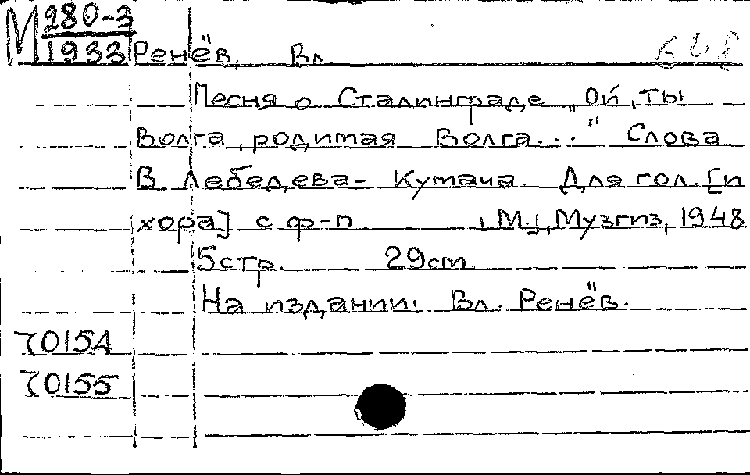 М 280-3
1933 Ренёв, Вл.
Песня о Сталинграде „Ой, ты
Волга, родимая Волга..." Слова
В. Лебедева-Кумача. Для гол. [и
хора] с ф-п [М.], Музгиз, 1948
5 стр. 29 cm
На издании: Вл. Ренёв.
70154
70155